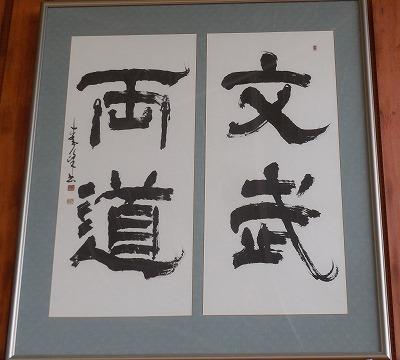 文武
両道